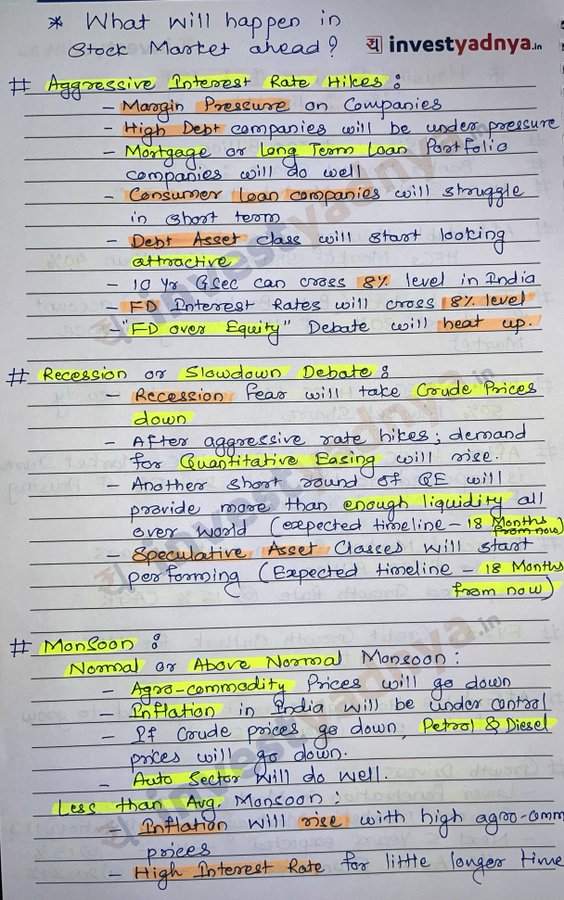 * What will happen in
Stock Market ahead?
investyadnya.in
# Aggressive Interest Rate Hikes:
- Margin Pressure on Companies
- High Debt companies will be under pressure
- Mortgage or Long Term Loan Portfolio
companies will do well
- Consumer loan companies will struggle
in short term
- Debt Asset class will start looking
attractive
- 10 Yr Gsec can cross 8% level in India
- FD Interest Rates will cross 8% level
- "FD over Equity" Debate will heat up.
# Recession or Slowdown Debate:
- Recession fear will take Crude Prices
down
- After aggressive rate hikes; demand
for Quantitative Easing will rise.
- Another short round of QE will
provide more than enough liquidity all
over world (expected timeline - 18 Months
from now)
- Speculative Asset Classes will start
performing (Expected timeline - 18 Months
from now)
# Monsoon:
Normal or Above Normal Monsoon:
- Agro-commodity Prices will go down
- Inflation in India will be under control
- If Crude prices go down, Petrol & Diesel
prices will go down.
- Auto Sector will do well.
Less than Avg. Monsoon:
- Inflation will rise with high agro-comm
prices
- High Interest Rate for little longer time